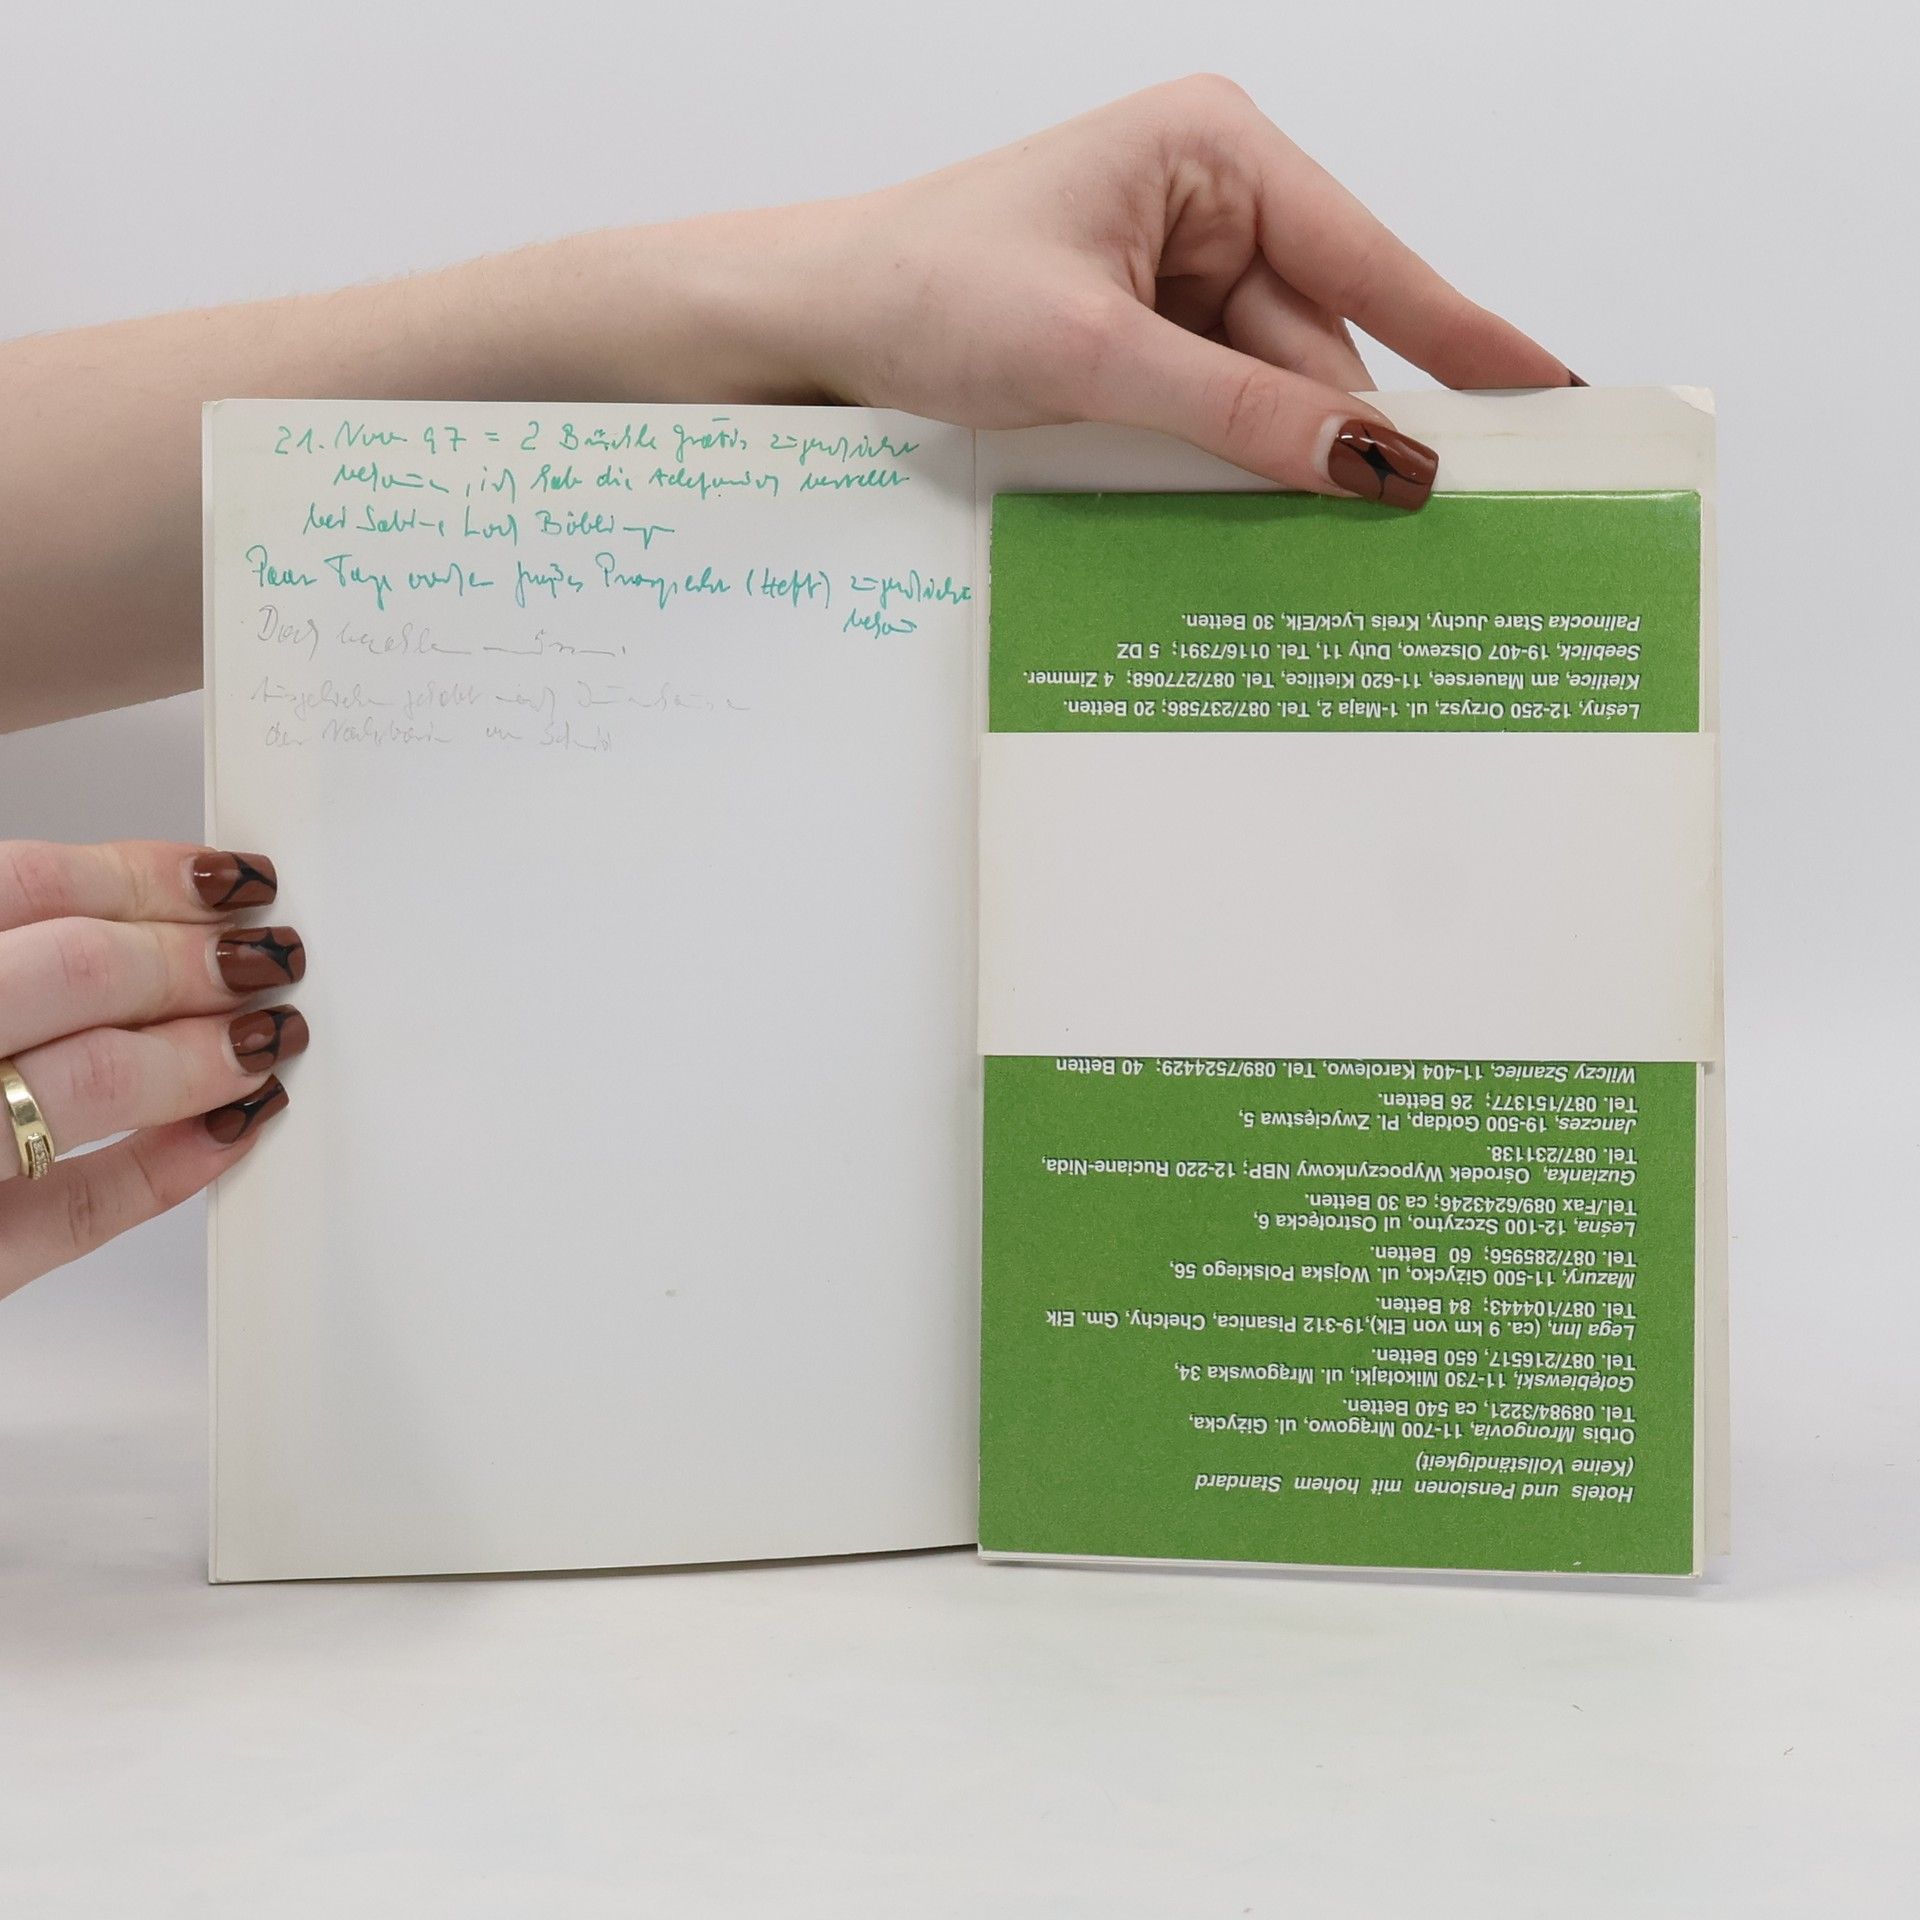 21. Nov 97 = 2 Büchle gratis zugeschickt
bekommen, ich hab die telefonisch bestellt
bei Sabine Loch Böblingen
Paar Tage vorher großes Prospekt (Heft) zugeschickt
bekom
Doch bezahlen müssen.
der Nachbarin
Hotels und Pensionen mit hohem Standard
(Keine Vollständigkeit)
Orbis Mrongovia, 11-700 Mrągowo, ul. Giżycka,
Tel. 08984/3221, ca 540 Betten.
Gołębiewski, 11-730 Mikołajki, ul. Mrągowska 34,
Tel. 087/216517, 650 Betten.
Lega Inn, (ca. 9 km von Ełk),19-312 Pisanica, Chełchy, Gm. Ełk
Tel. 087/104443; 84 Betten.
Mazury, 11-500 Giżycko, ul. Wojska Polskiego 56,
Tel. 087/285956; 60 Betten.
Leśna, 12-100 Szczytno, ul Ostrołęcka 6,
Tel./Fax 089/6243246; ca 30 Betten.
Guzianka, Ośrodek Wypoczynkowy NBP; 12-220 Ruciane-Nida,
Tel. 087/231138.
Janczes, 19-500 Gołdap, Pl. Zwycięstwa 5,
Tel. 087/151377; 26 Betten.
Wilczy Szaniec, 11-404 Karolewo, Tel. 089/7524429; 40 Betten
Leśny, 12-250 Orzysz, ul. 1-Maja 2, Tel. 087/237586; 20 Betten.
Kietlice, am Mauersee, 11-620 Kietlice, Tel. 087/277068; 4 Zimmer.
Seeblick, 19-407 Olszewo, Duły 11, Tel. 0116/7391; 5 DZ
Palinocka Stare Juchy, Kreis Lyck/Ełk, 30 Betten.